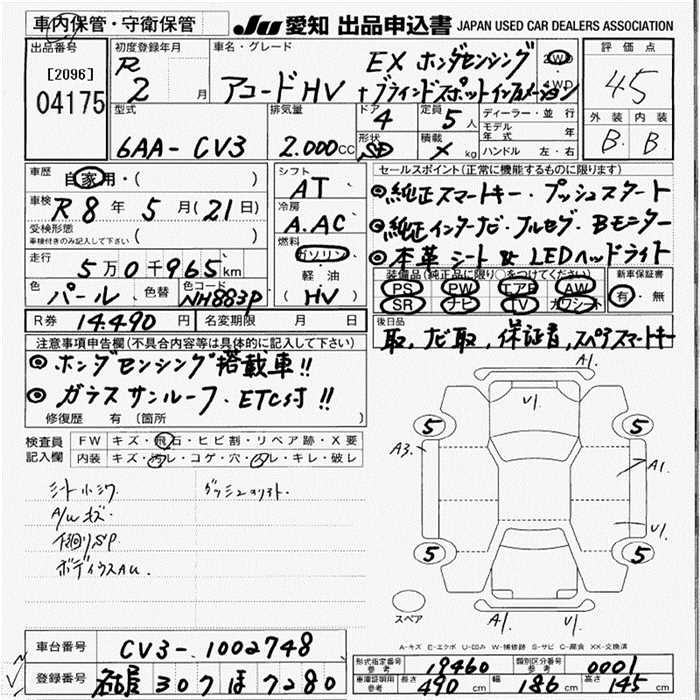 車内保管・守衛保管
JU 愛知 出品申込書 JAPAN USED CAR DEALERS ASSOCIATION
出品番号
[2096]
04175
初度登録年月
R 2 月
車名・グレード
アコードHV EX ホンダセンシング
+ブラインドスポットインフォメーション
2WD
4WD
評価点
4.5
外装 内装
B. B.
型式
6AA- CV3
排気量
2.000cc
ドア
4
形状
SD
定員
5人
積載
× kg
ディーラー・並行
モデル年式 年
ハンドル 左・右
車歴
自家用・( )
車検
R8年 5月(21日)
受検形態
車検付きのみ記入して下さい ( )
走行
5万0千965km
色
パール
色替
色コード
NH883P
R券 14.490円
名変期限 月 日
シフト
AT
冷房
A.AC
燃料
ガソリン
軽油
(HV)
セールスポイント(正常に機能するものに限ります)
◎純正スマートキー・プッシュスタート
◎純正インターナビ・フルセグ・Bモニター
◎本革シート LEDヘッドライト
装備品(純正品に限り○をつけてください)
PS PW エアB AW
SR ナビ TV カワシート
新車保証書
有・無
後日品
取, ナビ取, 保証書, スペアスマートキー
注意事項申告欄(不具合内容等は具体的に記入して下さい)
◎ホンダセンシング搭載車!!
◎ガラスサンルーフ・ETC付!!
修復歴 有 〔箇所
検査員記入欄
FW キズ・飛石・ヒビ割・リペア跡・X要
内装 キズ・汚レ・コゲ・穴・スレ・キレ・破レ
シート小シワ
A/Wキズ
下廻りSP
ボディウスAU.
A1.
V1.
5
5
A3.
A1.
V1.
5
5
A1.
V1.
スペア
A-キズ E-エクボ U-凹み W-補修跡 S-サビ C-腐食 XX-交換済
車台番号
CV3-1002748
登録番号
名古屋 307 ほ 7280
形式指定番号
参考
19460
類別区分番号
参考
0001
車庫証明用
参考
長さ 490cm 幅 186cm 高さ 145cm